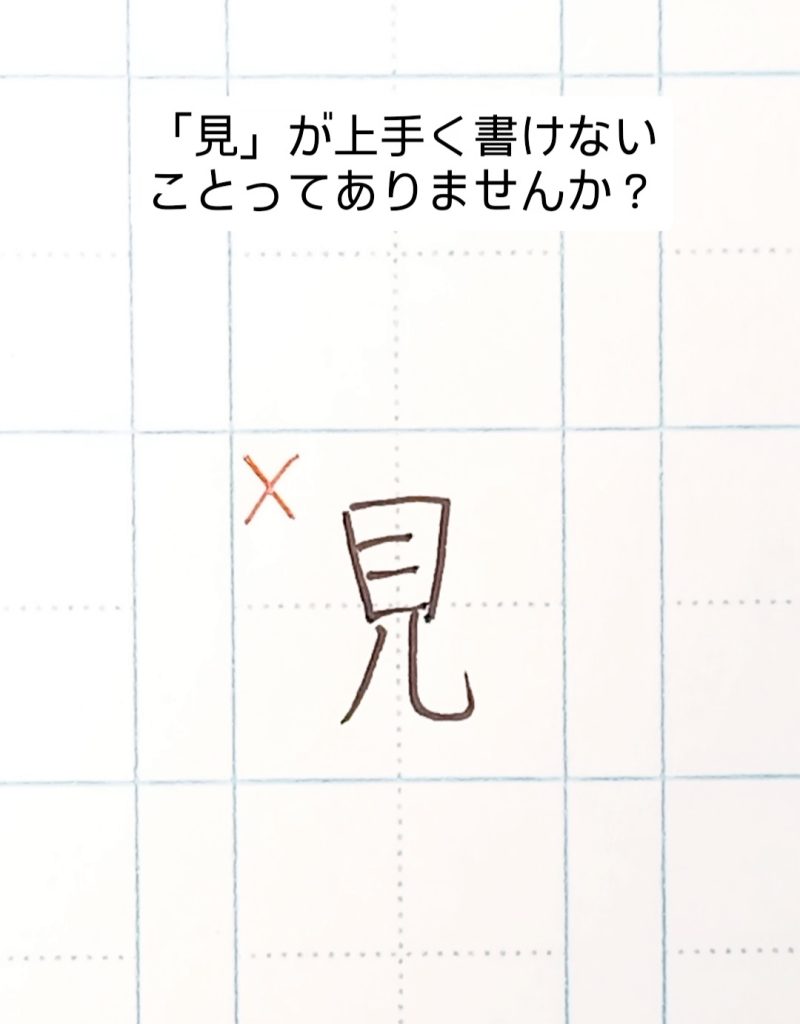 「見」が上手く書けない
ことってありませんか？
×
見